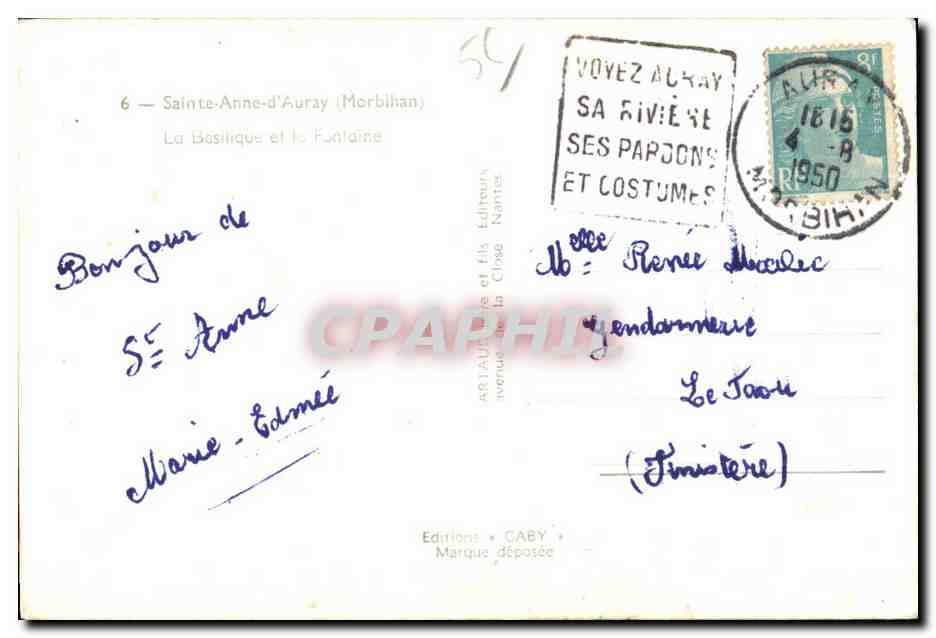 54
6 — Sainte-Anne-d'Auray (Morbihan)
La Basilique et la Fontaine
VOYEZ AURAY
SA RIVIÈRE
SES PARDONS
ET COSTUMES
AURAY
18 15
4 -8
1950
MORBIHAN
8F
POSTES
RF
Bonjour de
Ste Anne
Marie-Edmée
ARTAUD Père et fils Editeurs
avenue de la Close Nantes
Melle Renée
Gendarmerie
Le Faou
(Finistère)
CPAPHIL
Editions « GABY »
Marque déposée